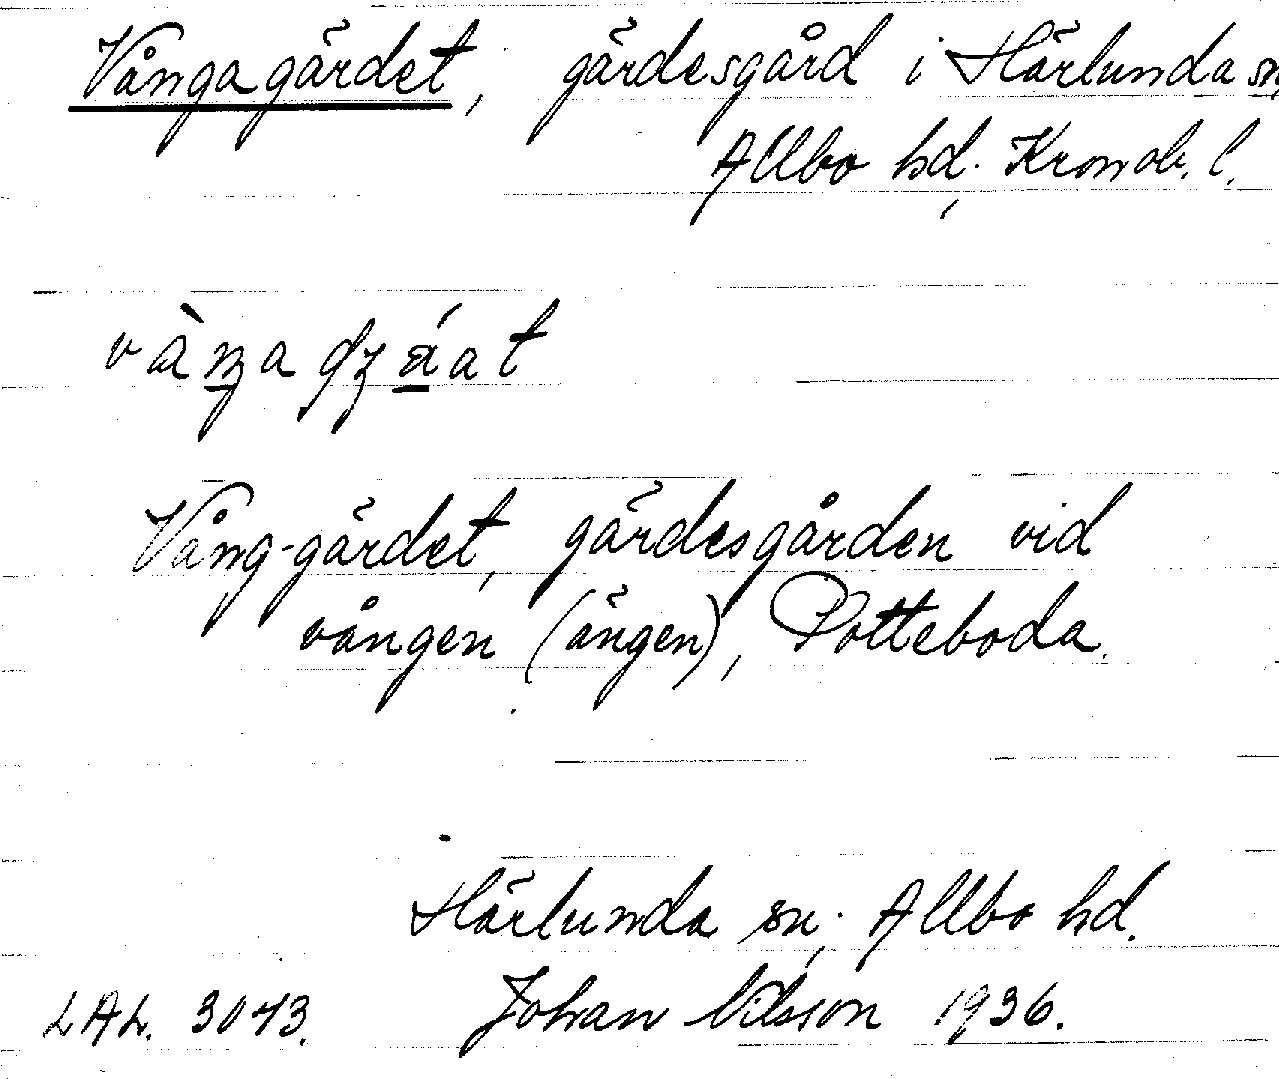 Vångagärdet, gärdesgård i Härlunda sn,
Allbo hd, Kronob. l.
Vång-gärdet, gärdesgården vid
vången (ängen), Potteboda.
Härlunda sn; Allbo hd.
LAL. 3043. Johan Nilsson 1936.